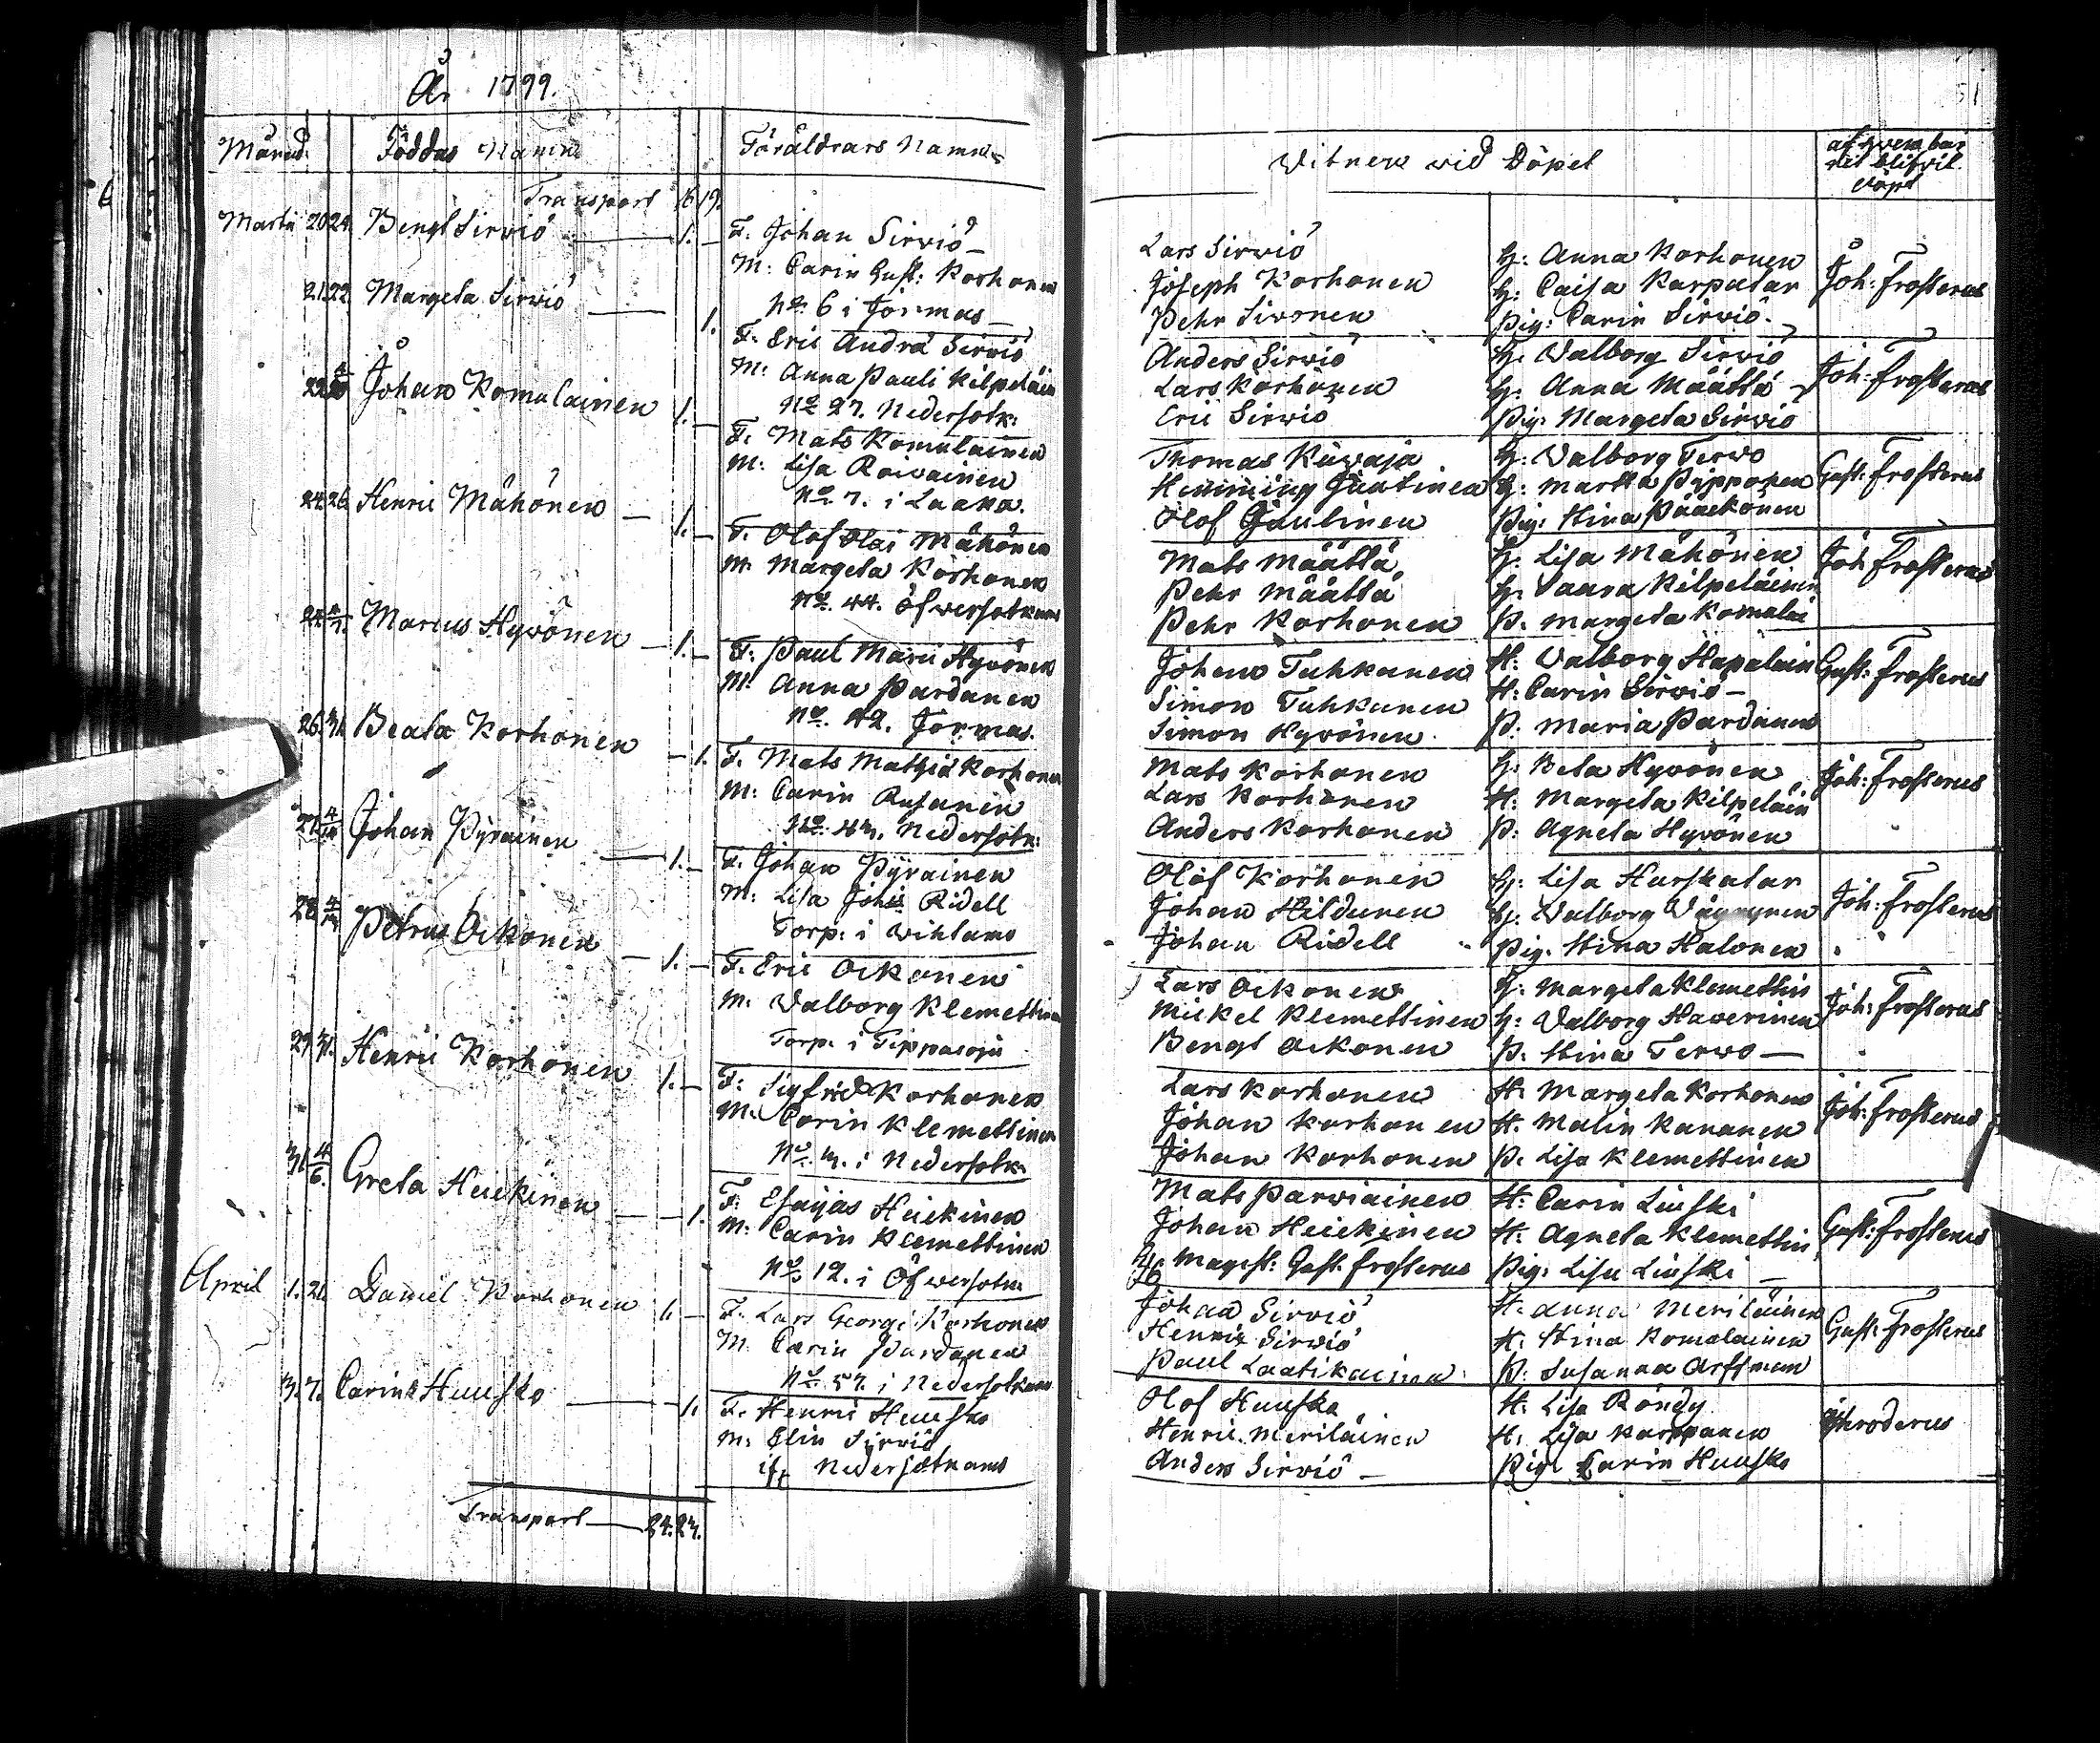 År 1799.
Månad. Föddas Namn Föräldrars Namn
Transport 16 19.
Martii 20 24. Bengt Sirviö 1. F. Johan Sirviö
M: Carin Gust: Korhonen
No 6 i Jormas
21 22 Margeta Sirviö 1. F. Eric Andrä Sirviö
M: Anna Pauli Kilpeläin
No 27. Nedersotk:
22 Johan Komulainen 1. F. Mats Komulainen
M: Lisa Roivainen
No 7. i Laaka.
24 26 Henric Mähönen 1. F. Olof Olai Mähönen
M. Margeta Korhonen
No. 44. Öfversotkam
24 Marcus Hyvönen 1. F. Paul Marci Hyvönen
M. Anna Pardanen
No. 42. Jormas.
26. 31. Beata Korhonen 1. F. Mats Matzid Korhonen
M: Carin Rusanin
No. 43. Nedersotk:
27 4/14 Johan Pyrainen 1. F. Johan Pyrainen
M: Lisa Johis Ridell
Torp. i Wihtamo
28 4/14 Petrus Oikonen 1. F. Eric Oikonen
M. Valborg Klemettinen
Torp. i Tippasoja
29 31. Henric Korhonen 1. F: Sigfrid Korhonen
M. Carin Klemettinen
No. 3. i Nedersotk
31 4/6. Greta Heickinen 1. F: Esaijas Heickinen
M: Carin Klemettinen
No. 12. i Öfversotk
April 1. 21. Daniel Korhonen 1. F. Lars Georgi Korhonen
M. Carin Pardanen
No. 57. i Nedersotkam
3. 7. Carin Huusko 1. F. Henric Huusko
M. Elin Sirviö
ift Nedersotkamo
Transport 24. 23.
51
Witnen wid Döpet af hvem bar
net blifvit
döpt
Lars Sirviö H: Anna Korhonen Joh: Frosterus
Joseph Korhonen H: Caisa Karpatar
Pehr Sivonen Pig: Carin Sirviö.
Anders Sirviö H: Valborg Sirviö Joh: Frosterus
Lars Korhonen H: Anna Määttä
Eric Sirviö Pig: Margeta Sirviö
Thomas Kuvaja H: Valborg Tervo Gust: Frosterus
Hemming Juutinen H: Martta Pipponen
Olof Juutinen Pig: Stina Pääckönen
Mats Määttä H: Lisa Mähönen Joh Frosterus
Pehr Määttä H: Vaara Kilpeläinen
Pehr Korhonen P. Margeta Komulai
Johan Tuhkanen H: Valborg Hapalain Gust: Frosterus
Simon Tuhkanen H: Carin Sirviö
Simon Hyvönen P: Maria Pardanen
Mats Korhonen H: Beta Hyvönen Joh: Frosterus
Lars Korhonen H: Margeta Kilpeläin
Anders Korhonen P: Agneta Hyvönen
Olof Korhonen H: Lisa Hurskatar Joh: Frosterus
Johan Hildunen H: Valborg Väyrynen
Johan Ridell Pig. Stina Halonen
Lars Oikonen H: Margeta Klemettin Joh: Frosterus
Mickel Klemettinen H: Valborg Haverinen
Bengt Oikonen P. Stina Tervo
Lars Korhonen H: Margeta Korhonen Joh: Frosterus
Johan Korhonen H. Malin Kananen
Johan Korhonen P. Lisa Klemettinen
Mats Parviainen H: Carin Liuski Gust: Frosterus
Johan Heickinen H. Agneta Klemettin
Magist: Gust. Frosterus Pig. Lisa Liuski
Johan Sirviö H. Anna Meriläinen Gust: Frosterus
Henric Sirviö H. Stina Komulainen
Paul Laatikainen P. Susanna Arffman
Olof Huusko H. Lisa Röndy
Henric Meriläinen H. Lisa Karppanen
Anders Sirviö Pig. Carin Huusko